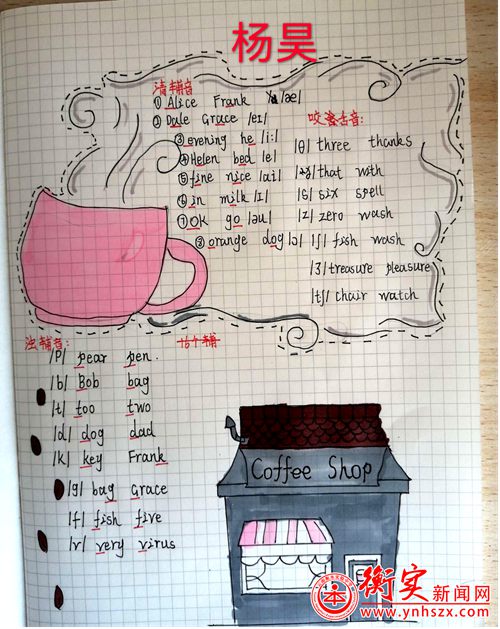 杨昊
清辅音
① Alice Frank /æ/
② Dale Grace /eɪ/
③ evening he /i:/
④ Helen bed /e/
⑤ fine nice /ai/
⑥ in milk /ɪ/
⑦ OK go /əu/
⑧ orange dog /ɔ/
咬舌音
/θ/ three thanks
/ð/ that with
/s/ six spell
/z/ zero wash
/ʃ/ fish wash
/ʒ/ treasure pleasure
/tʃ/ chair watch
浊辅音:
16个辅
/p/ pear pen.
/b/ Bob bag
/t/ too two
/d/ dog dad
/k/ key Frank
/g/ bag Grace
/f/ fish five
/v/ very virus
Coffee Shop
衡实新闻网
www.ynhszx.com